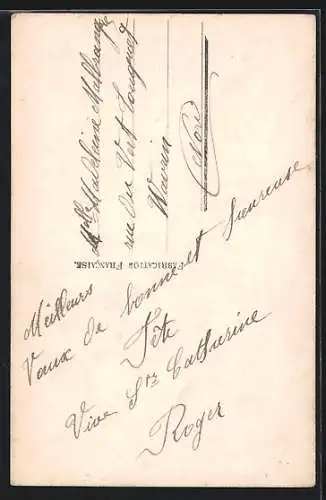 Mlle Madeleine Malbranq
rue du Vert Touquet
Wavrin
(Nord)
FABRICATION FRANÇAISE
Meilleurs
Vœux de bonne et heureuse
Fête
Vive Ste Catherine
Roger